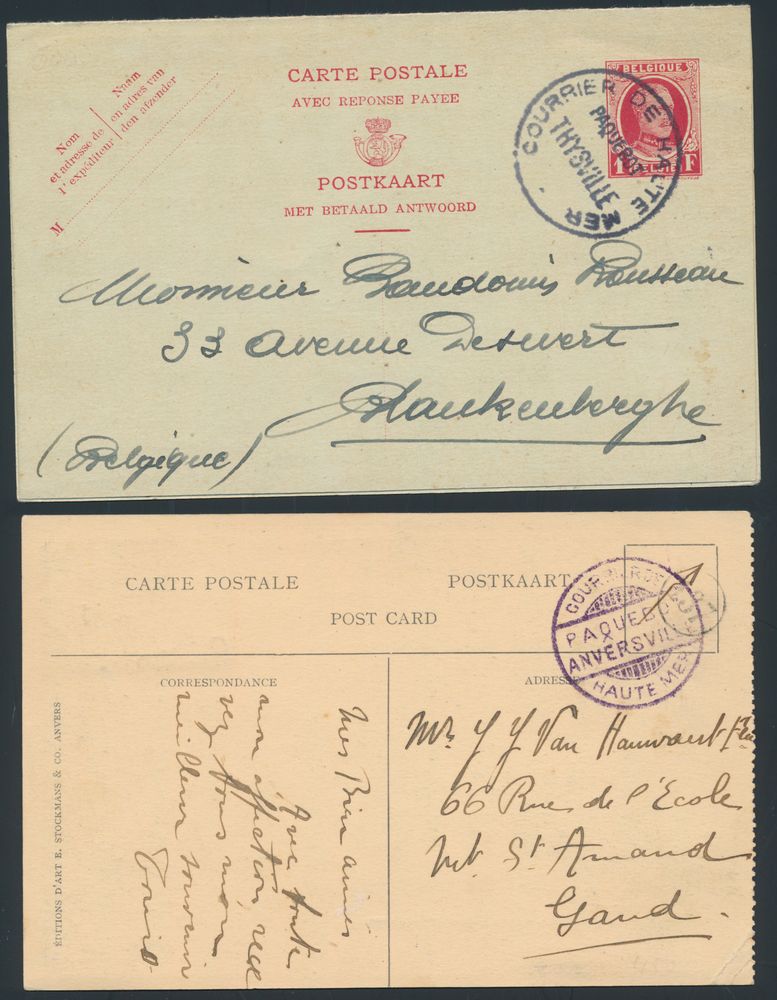 Nom
et adresse de
l'expéditeur
Naam
en adres van
den afzender
M
CARTE POSTALE
AVEC REPONSE PAYEE
POSTKAART
MET BETAALD ANTWOORD
BELGIQUE
1 F
BELGIË
COURRIER DE HAUTE MER
PAQUEBOT
THYSVILLE
Monsieur Baudouin Rousseau
33 Avenue Desmert
Blankenberghe
(Belgique)
CARTE POSTALE
POSTKAART
POST CARD
COURRIER DE
PAQUEBO
ANVERSVIL
HAUTE MER
CORRESPONDANCE
ADRESSE
ÉDITIONS D'ART E. STOCKMANS & CO. ANVERS
Mes Bien aimés
Avec toute
mon affection rece
vez tous mon
meilleur souvenir
Mr J J Van
66 Rue de l'Ecole
Mt St Amand
Gand